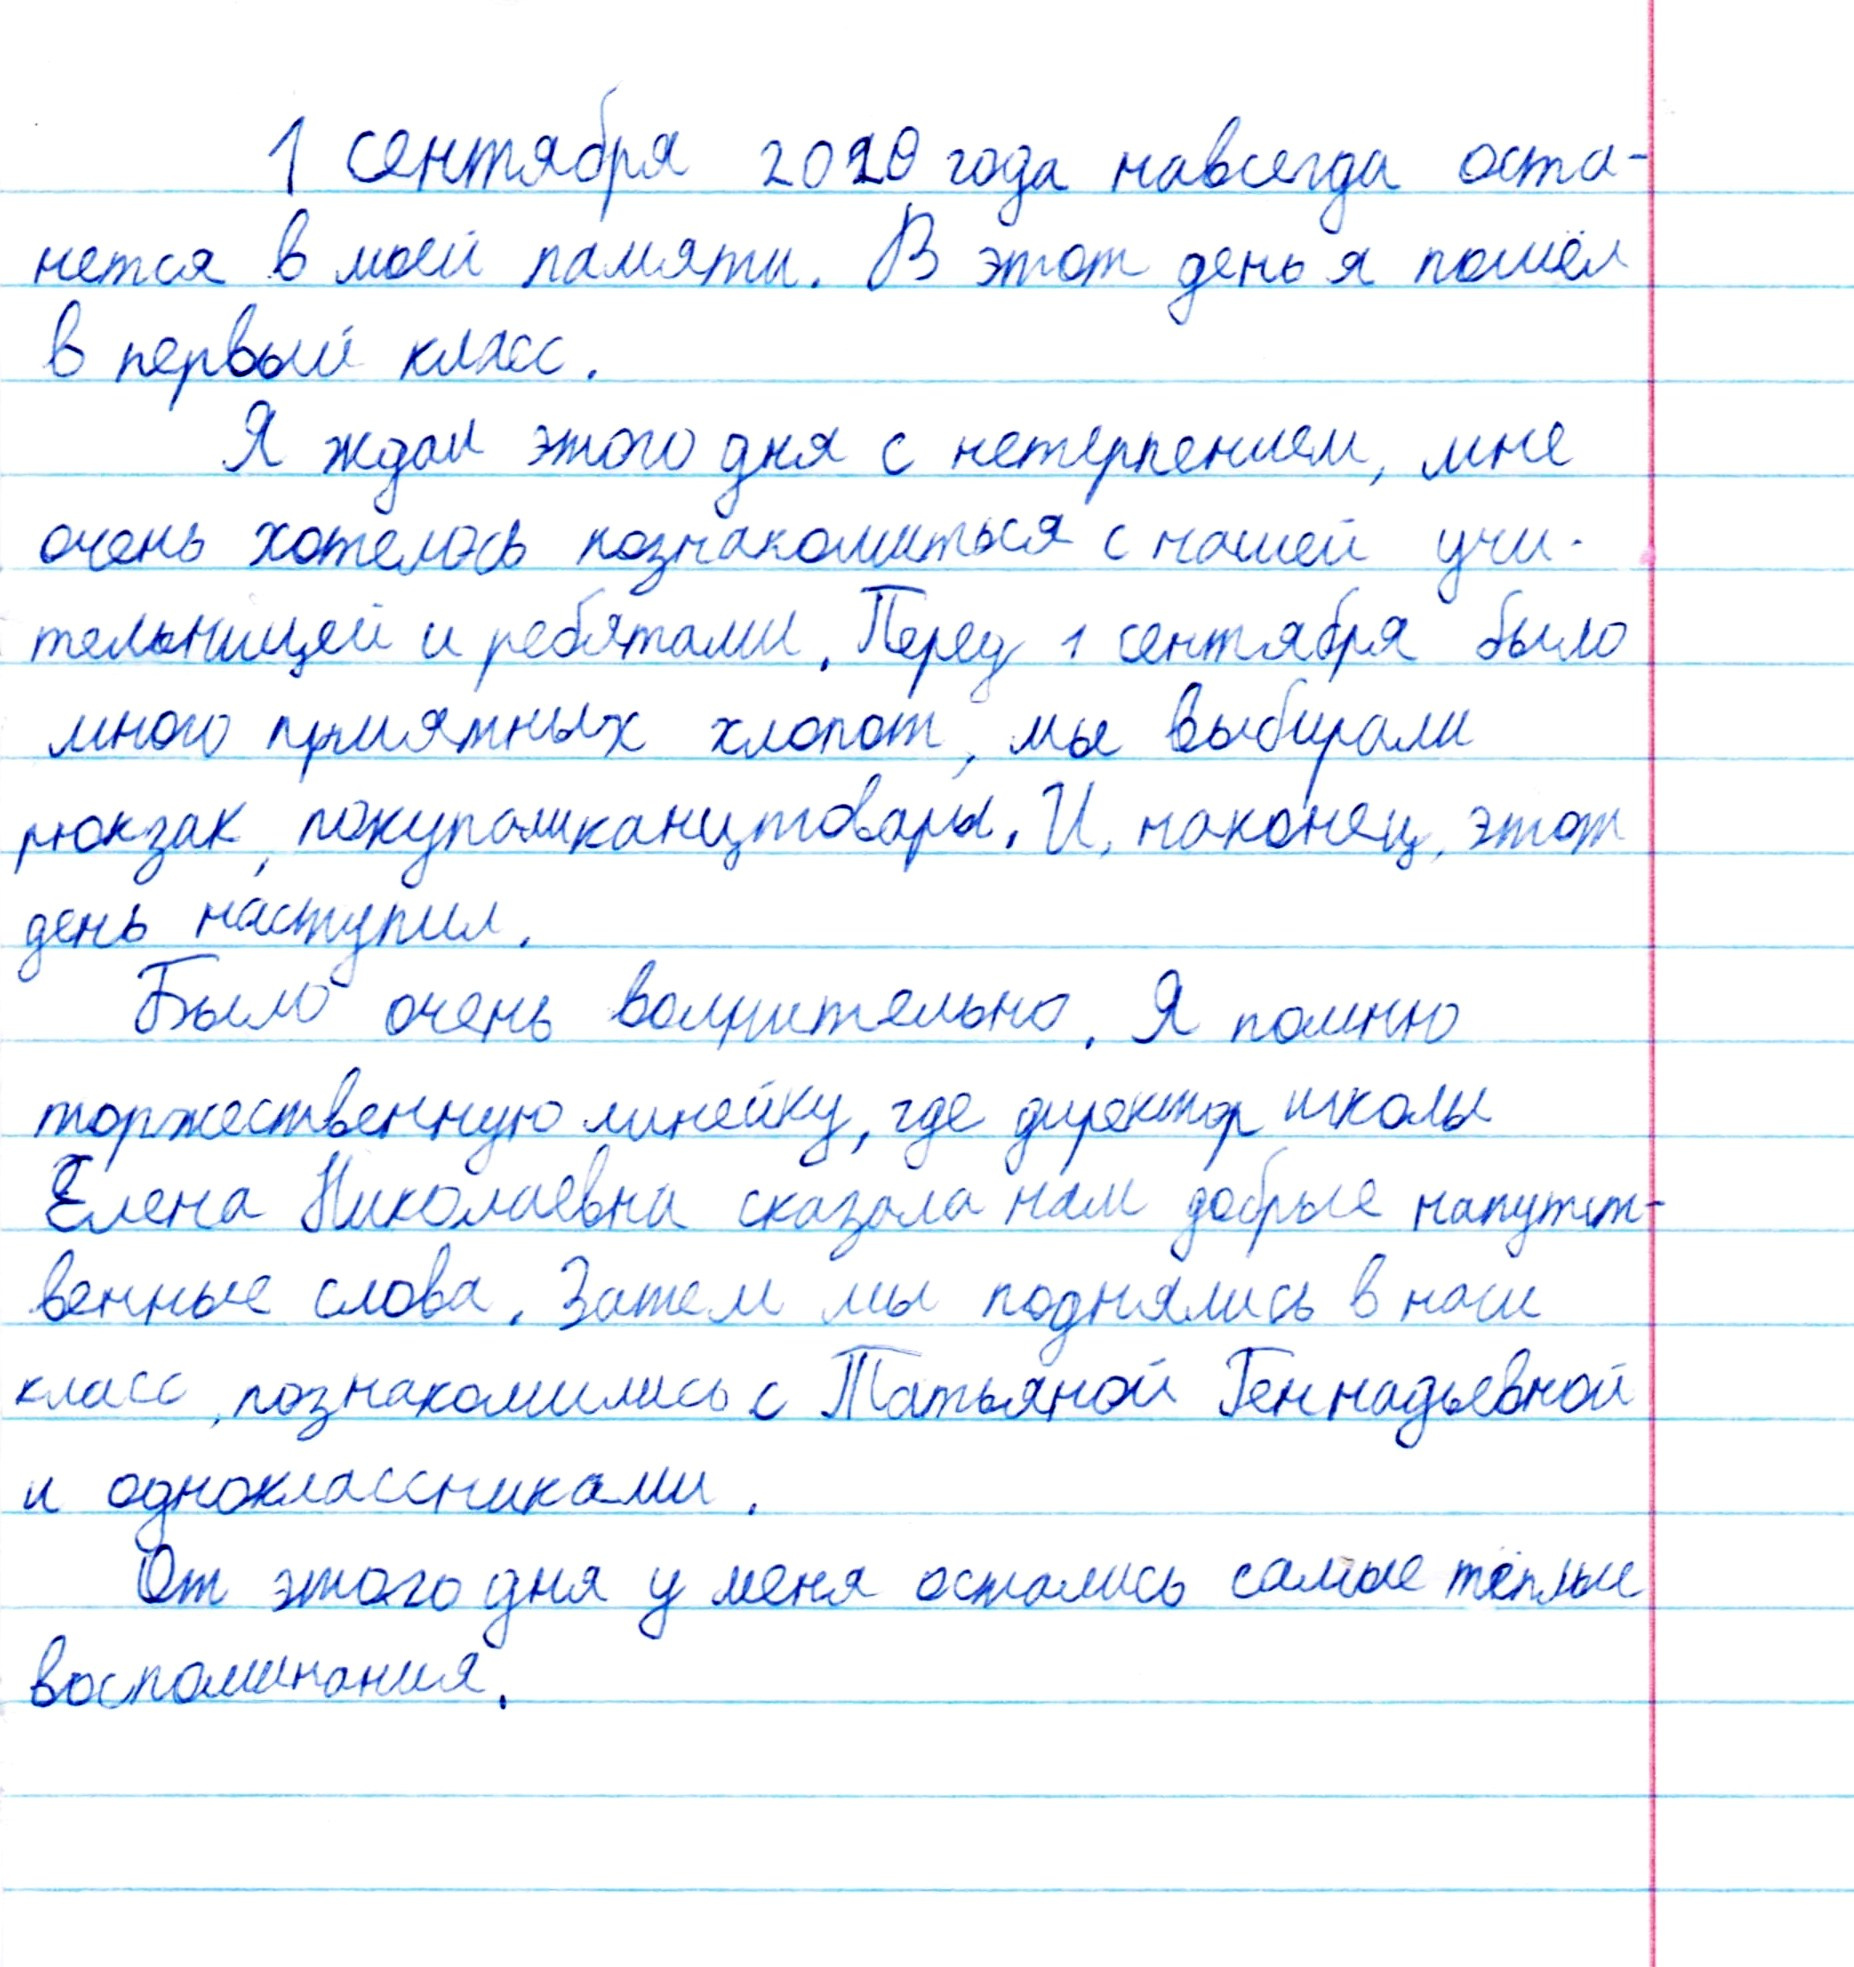 1 сентября 2020 года навсегда оста-
нется в моей памяти. В этот день я пошёл
в первый класс.
Я ждал этого дня с нетерпением, мне
очень хотелось познакомиться с нашей учи-
тельницей и ребятами. Перед 1 сентября было
много приятных хлопот, мы выбирали
рюкзак, покупали канцтовары. И, наконец, этот
день наступил.
Было очень волнительно. Я помню
торжественную линейку, где директор школы
Елена Николаевна сказала нам добрые напутст-
венные слова. Затем мы поднялись в наш
класс, познакомились с Татьяной Геннадьевной
и одноклассниками.
От этого дня у меня остались самые тёплые
воспоминания.